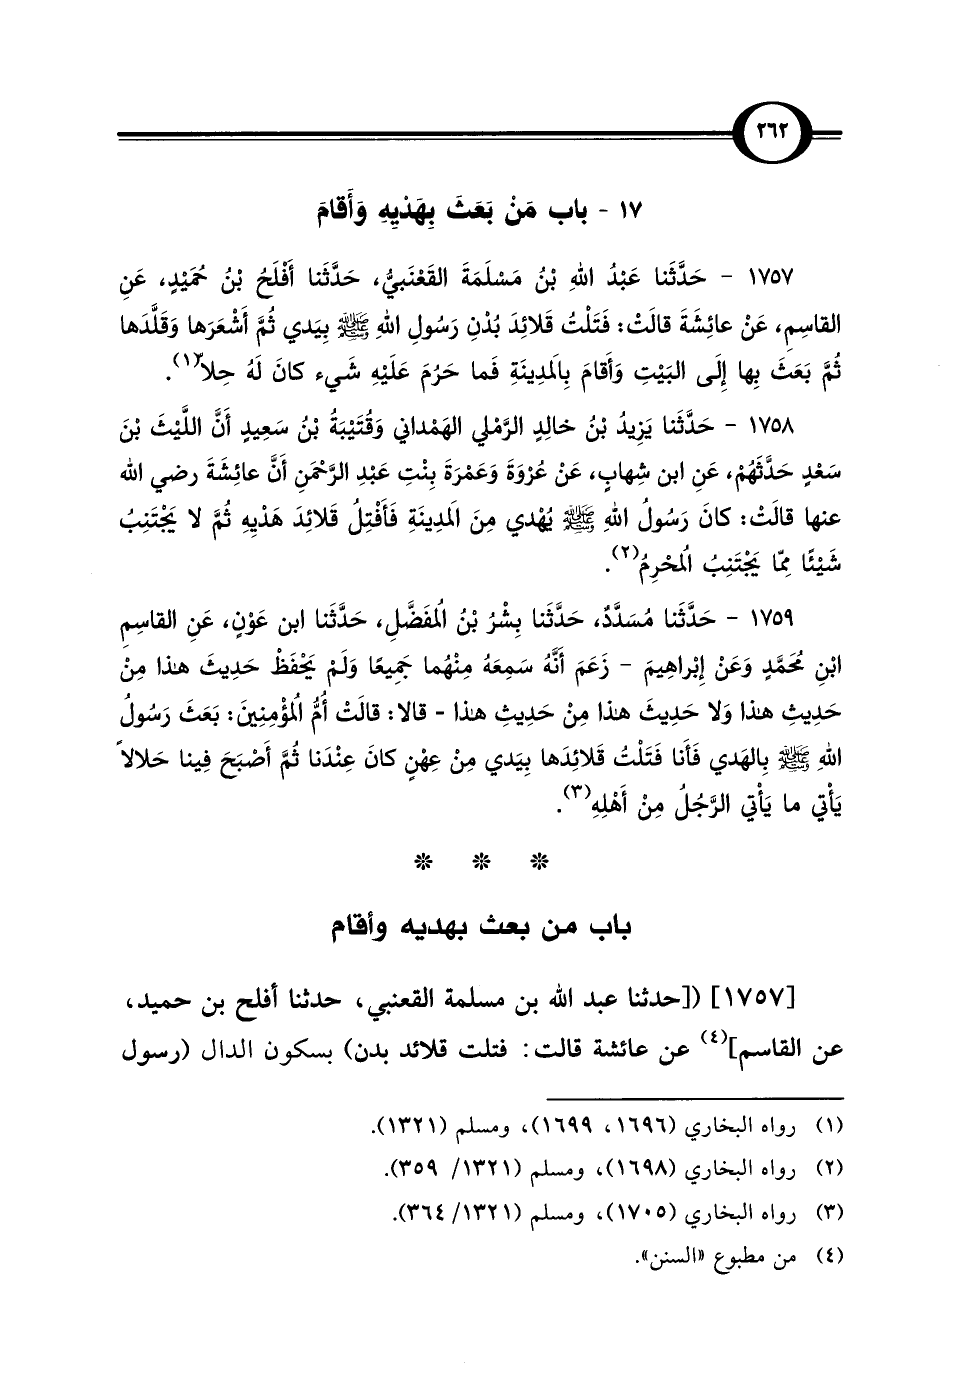 ٢٦٢
١٧ - باب مَنْ بَعَثَ بِهَدْيِهِ وَأَقامَ
١٧٥٧ - حَدَّثَنا عَبْدُ اللهِ بْنُ مَسْلَمَةَ القَعْنَبيُّ، حَدَّثَنا أَفْلَحُ بْنُ حُمَيْدٍ، عَنِ
القاسِمِ، عَنْ عائِشَةَ قالَتْ: فَتَلْتُ قَلائِدَ بُدْنِ رَسُولِ اللهِ ﷺ بِيَدي ثُمَّ أَشْعَرَها وَقَلَّدَها
ثُمَّ بَعَثَ بِها إِلَى البَيْتِ وَأَقامَ بِالمَدِينَةِ فَما حَرُمَ عَلَيْهِ شَيء كانَ لَهُ حِلاًّ(١).
١٧٥٨ - حَدَّثَنا يَزِيدُ بْنُ خالِدٍ الرَّمْلي الهَمْداني وَقُتَيْبَةُ بْنُ سَعِيدٍ أَنَّ اللَّيْثَ بْنَ
سَعْدٍ حَدَّثَهُمْ، عَنِ ابن شِهابٍ، عَنْ عُرْوَةَ وَعَمْرَةَ بِنْتِ عَبْدِ الرَّحْمَنِ أَنَّ عائِشَةَ رضي الله
عنها قالَتْ: كانَ رَسُولُ اللهِ ﷺ يُهْدي مِنَ المَدِينَةِ فَأَفْتِلُ قَلائِدَ هَدْيِهِ ثُمَّ لا يَجْتَنِبُ
شَيْئًا مِمّا يَجْتَنِبُ المُحْرِمُ(٢).
١٧٥٩ - حَدَّثَنا مُسَدَّدٌ، حَدَّثَنا بِشْرُ بْنُ المُفَضَّلِ، حَدَّثَنا ابن عَوْنٍ، عَنِ القاسِمِ
ابْنِ مُحَمَّدٍ وَعَنْ إِبْراهِيمَ - زَعَمَ أَنَّهُ سَمِعَهُ مِنْهُما جَمِيعًا وَلَمْ يَحْفَظْ حَدِيثَ هذا مِنْ
حَدِيثِ هذا وَلا حَدِيثَ هذا مِنْ حَدِيثِ هذا - قالا: قالَتْ أُمُّ المُؤْمِنِينَ: بَعَثَ رَسُولُ
اللهِ ﷺ بِالهَدي فَأَنا فَتَلْتُ قَلائِدَها بِيَدي مِنْ عِهْنٍ كانَ عِنْدَنا ثُمَّ أَصْبَحَ فِينا حَلالاً
يَأْتي ما يَأْتي الرَّجُلُ مِنْ أَهْلِهِ(٣).
* * *
باب من بعث بهديه وأقام
[١٧٥٧] ([حدثنا عبد الله بن مسلمة القعنبي، حدثنا أفلح بن حميد،
عن القاسم](٤) عن عائشة قالت: فتلت قلائد بدن) بسكون الدال (رسول
(١) رواه البخاري (١٦٩٦، ١٦٩٩)، ومسلم (١٣٢١).
(٢) رواه البخاري (١٦٩٨)، ومسلم (١٣٢١/ ٣٥٩).
(٣) رواه البخاري (١٧٠٥)، ومسلم (١٣٢١/ ٣٦٤).
(٤) من مطبوع «السنن».